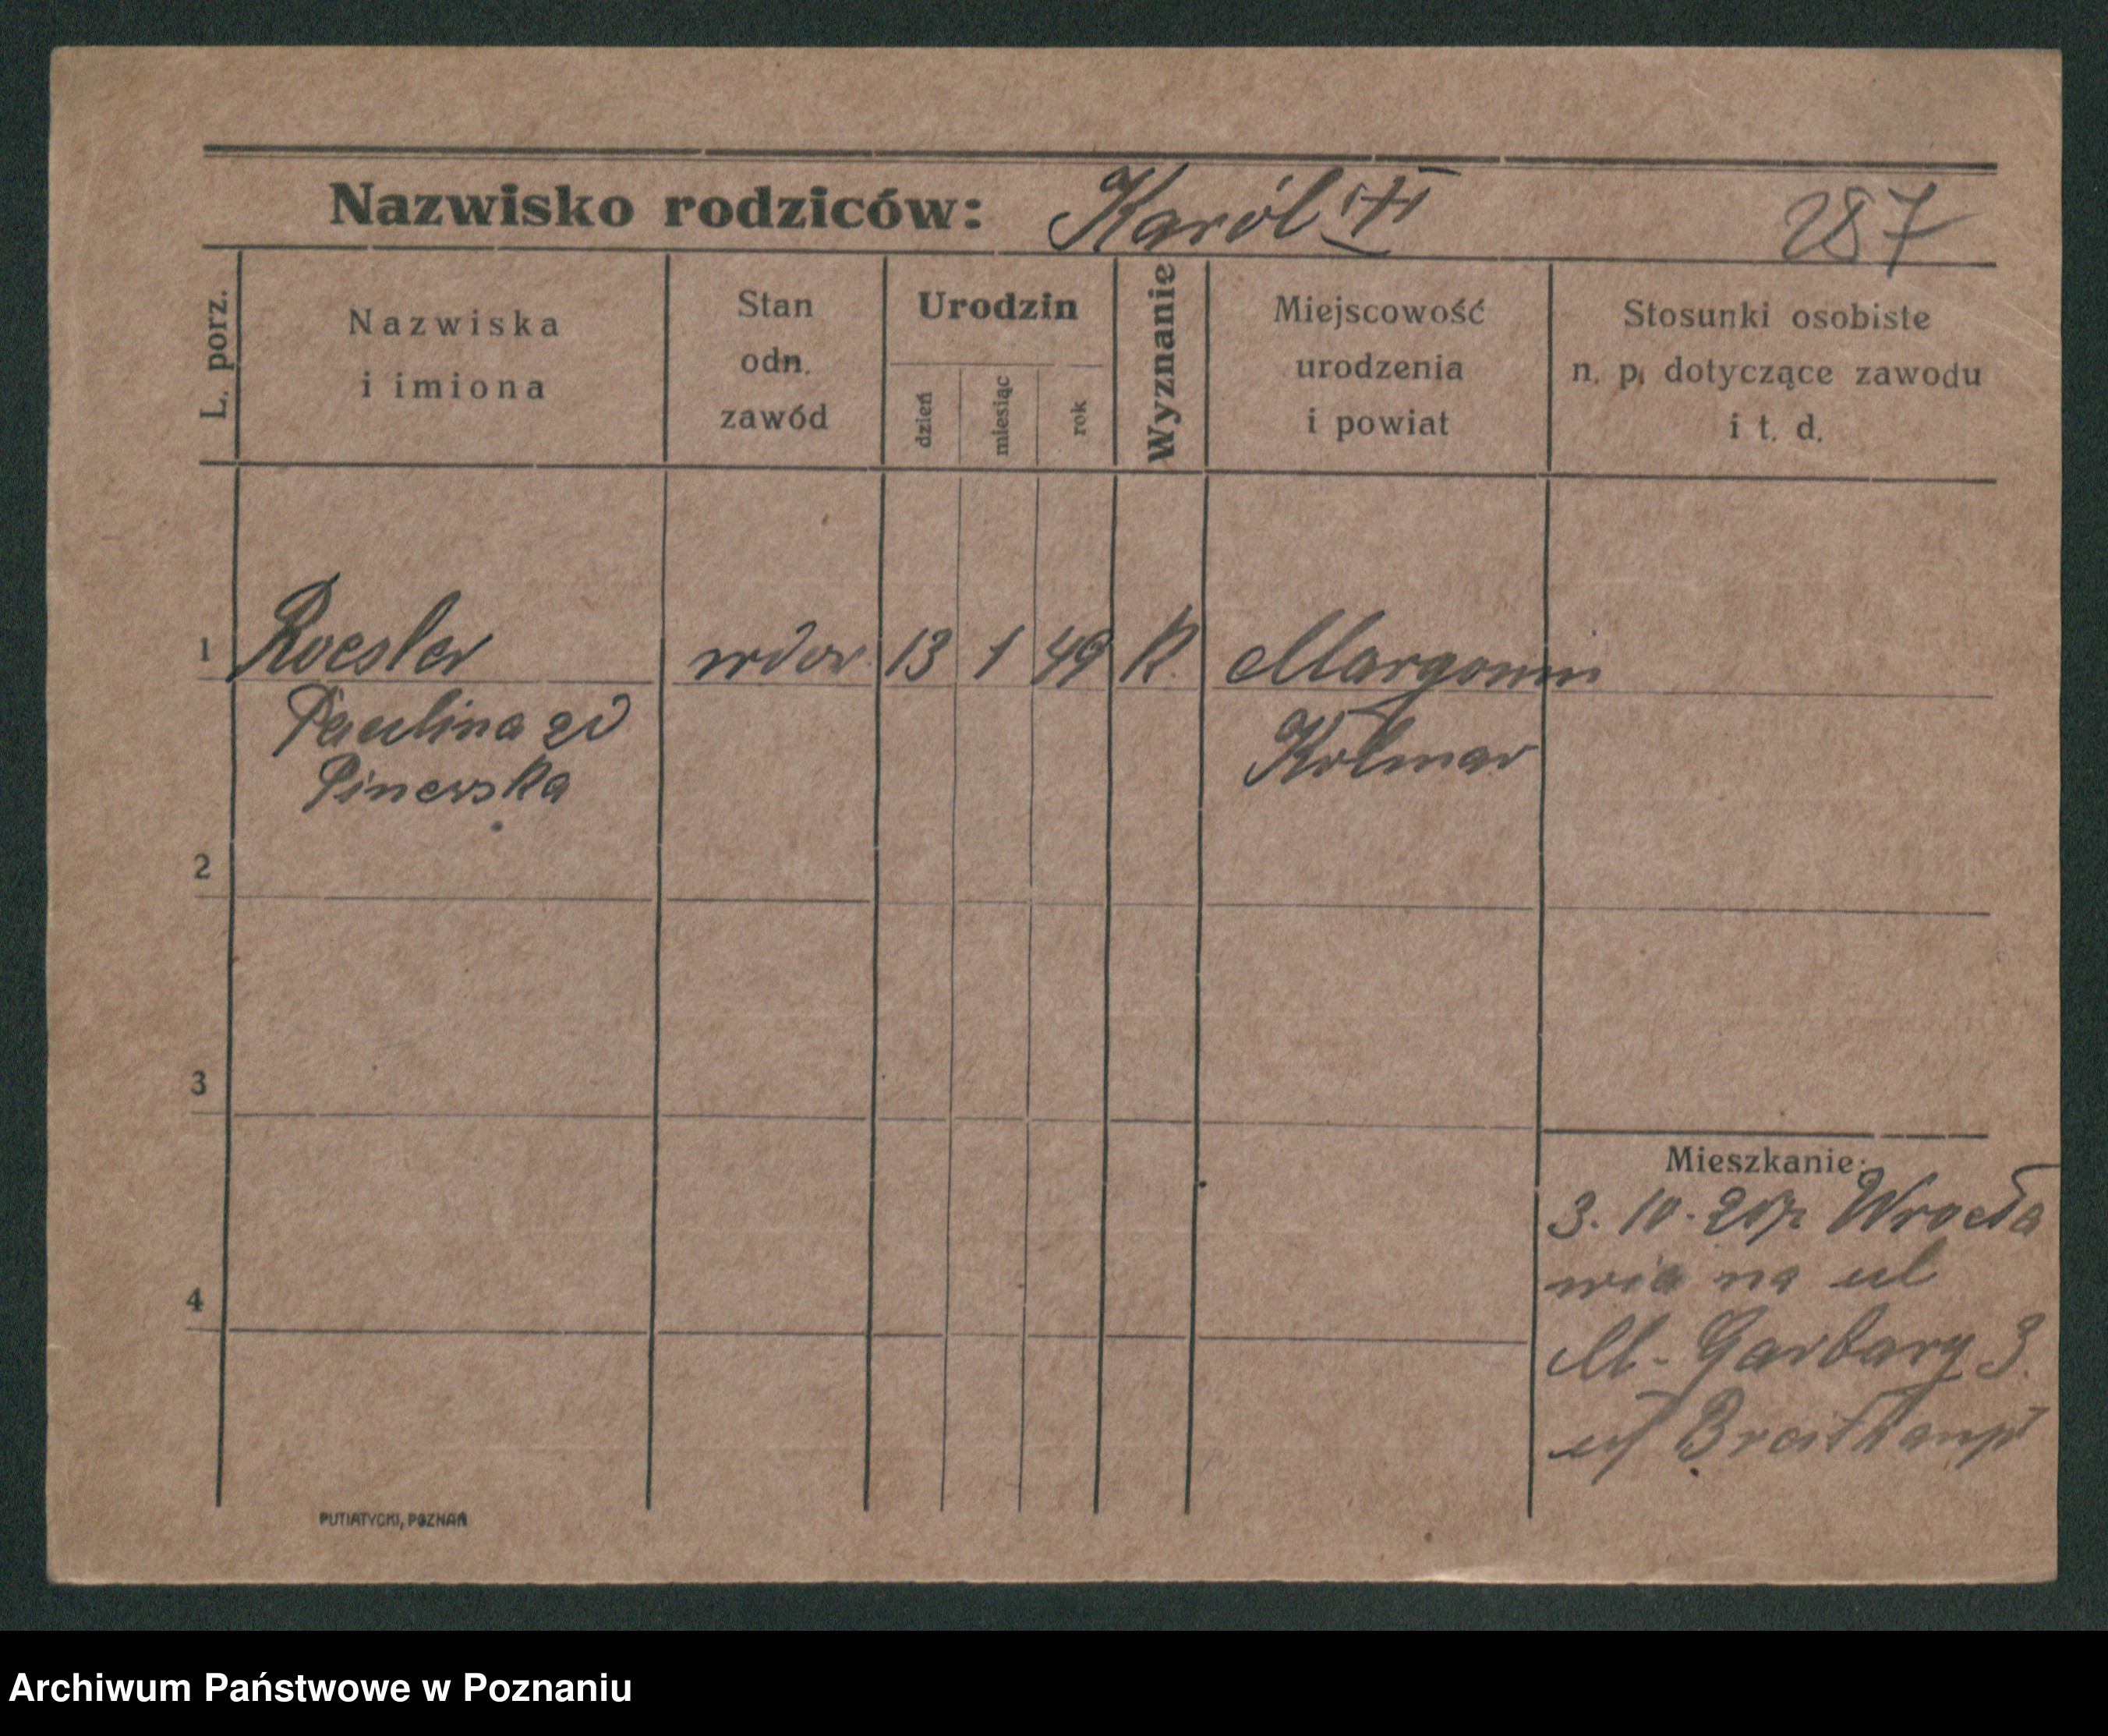 Nazwisko rodziców: Karól 287
L. porz.
Nazwiska
i imiona
Stan
odn.
zawód
Urodzin
dzień
miesiąc
rok
Wyznanie
Miejscowość
urodzenia
i powiat
Stosunki osobiste
n. p. dotyczące zawodu
i t. d.
1 Roesler wdow. 13 1 49 K. Margonin
Paulina
Kolmar
2
3
4
Mieszkanie:
3. 10. Wrocła
wia na ul
M. Garbary 3.
PUTIATYCKI, POZNAŃ
Archiwum Państwowe w Poznaniu